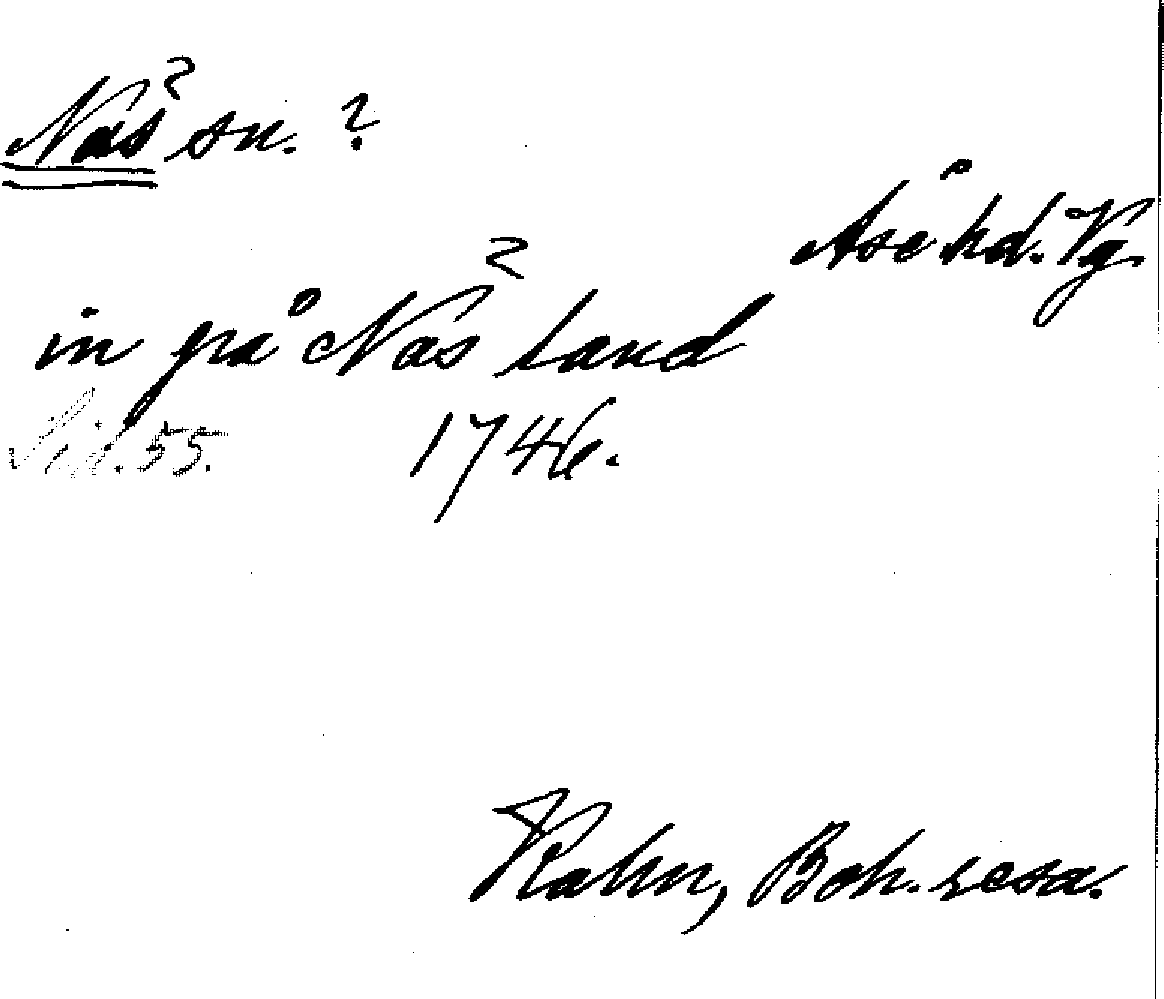 Näs sn. ?
Åse hd. Vg.
in på Näs land
Sid. 55. 1746.
Kalm, Boh. resa.